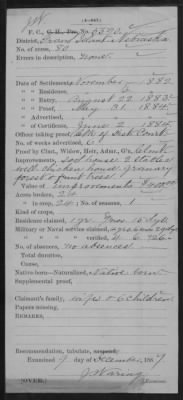 (4-348.)
F. C., No. 6390
District, Grand Island Nebraska
No. of acres, 80
Errors in description, None.
Date of Settlement, November 1882
" " Residence,
" " Entry, August 22 1883
" " Proof, May 31 1884
" " Advertised,
" " Certificate, June 2 1884
Officer taking proof, Clk of Dist Court
No. of weeks adv'd,
Proof by Clmt., Widow, Heir, Adm'r, G'n, Clmt
Improvements, sod house 2 stables
well chicken house granary
forest & fruit trees
Value of improvements $400.00
Acres broken, 24
" in crop, 24; No. of seasons, 1
Kind of crops,
Residence claimed, 1 yr. 6 mos. 15 dys.
Military or Naval service claimed,
" " " " verified,
No. of absences, no absences
Total duration,
Cause,
Native born—Naturalized, Native born
Supplemental proof,
Claimant's family, wife & 6 children
Papers missing,
REMARKS,
Recommendation, tabulate, suspend,
Examined 9 day of December, 1887
J Waring
Examiner.
[OVER.]